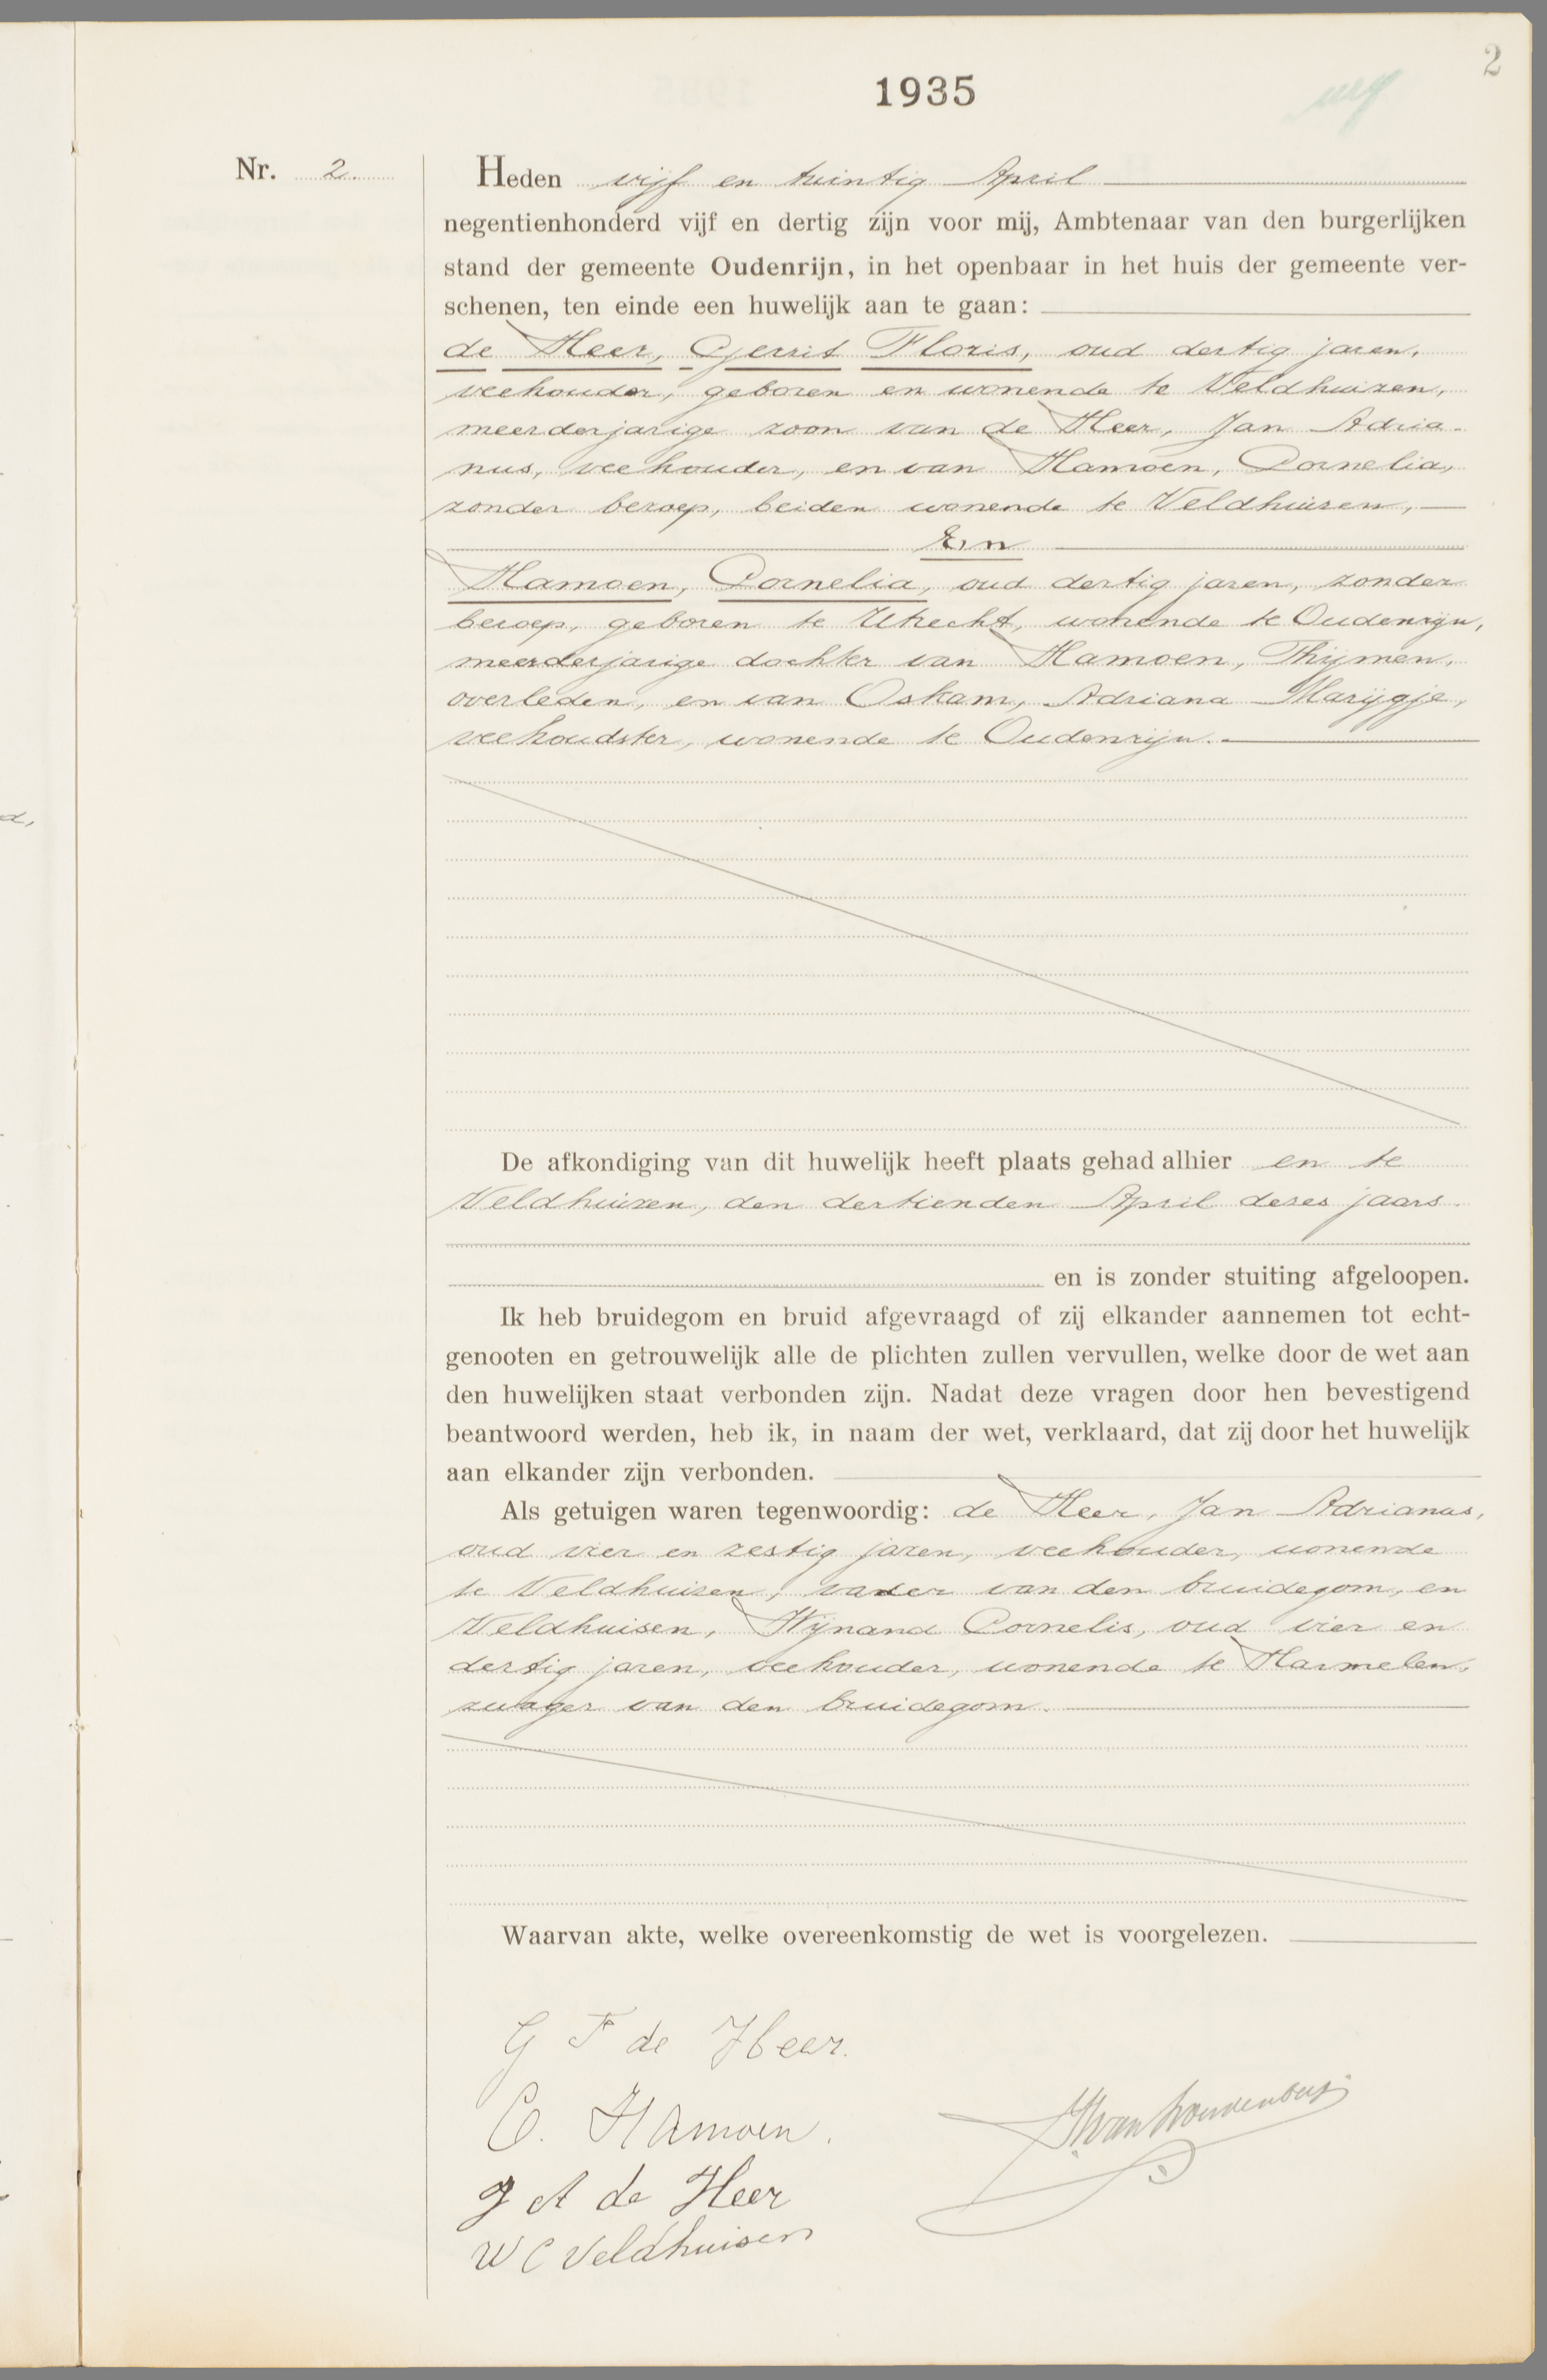 2
1935
Nr. 2
Heden vijf en twintig April
negentienhonderd vijf en dertig zijn voor mij, Ambtenaar van den burgerlijken
stand der gemeente Oudenrijn, in het openbaar in het huis der gemeente ver-
schenen, ten einde een huwelijk aan te gaan:
de Heer, Gerrit Floris, oud dertig jaren,
veehouder, geboren en wonende te Veldhuizen,
meerderjarige zoon van de Heer, Jan Adria-
nus, veehouder, en van Hamoen, Cornelia,
zonder beroep, beiden wonende te Veldhuizen,
En
Hamoen, Cornelia, oud dertig jaren, zonder
beroep, geboren te Utrecht, wonende te Oudenrijn,
meerderjarige dochter van Hamoen, Thijmen,
overleden, en van Oskam, Adriana Marijgje,
veehoudster, wonende te Oudenrijn.
De afkondiging van dit huwelijk heeft plaats gehad alhier en te
Veldhuizen, den dertienden April dezes jaars
en is zonder stuiting afgeloopen.
Ik heb bruidegom en bruid afgevraagd of zij elkander aannemen tot echt-
genooten en getrouwelijk alle de plichten zullen vervullen, welke door de wet aan
den huwelijken staat verbonden zijn. Nadat deze vragen door hen bevestigend
beantwoord werden, heb ik, in naam der wet, verklaard, dat zij door het huwelijk
aan elkander zijn verbonden.
Als getuigen waren tegenwoordig: de Heer, Jan Adrianus,
oud vier en zestig jaren, veehouder, wonende
te Veldhuizen, vader van den bruidegom, en
Veldhuisen, Wijnand Cornelis, oud vier en
dertig jaren, veehouder, wonende te Harmelen,
zwager van den bruidegom.
Waarvan akte, welke overeenkomstig de wet is voorgelezen.
G F de Heer.
C. Hamoen.
J A de Heer
W C Veldhuisen